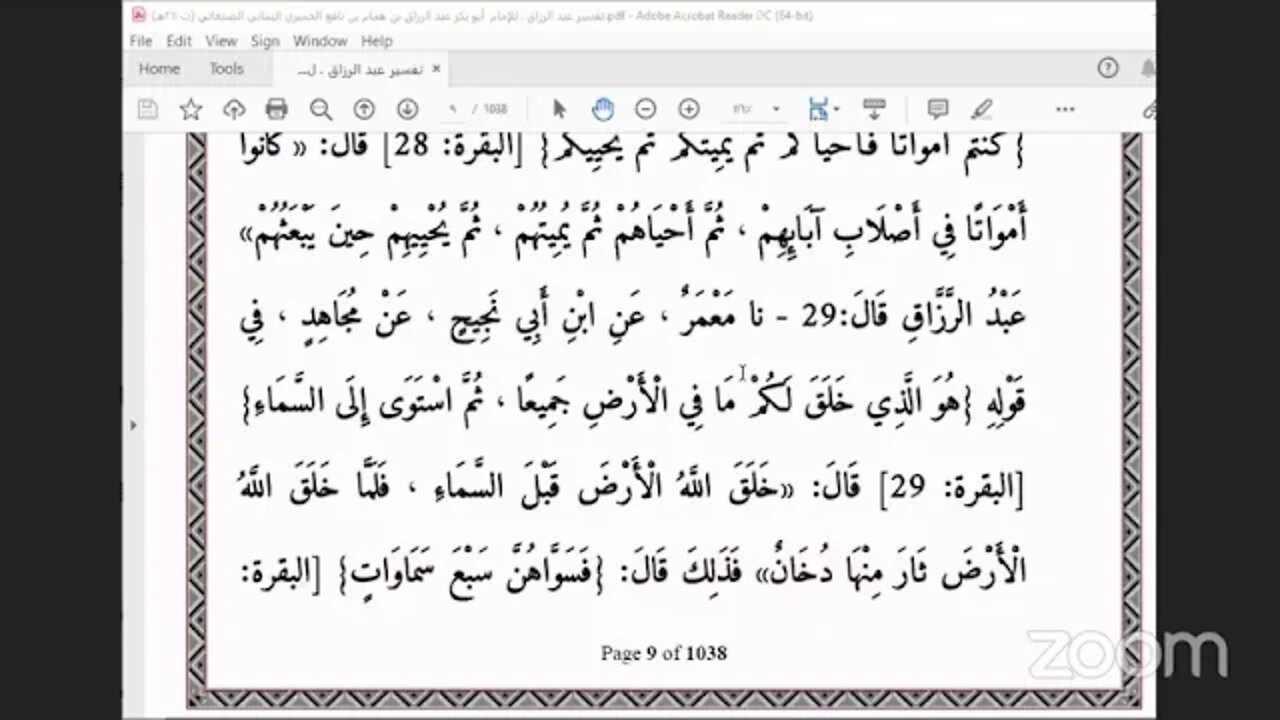 تفسير عبد الرزاق ، للإمام أبو بكر عبد الرزاق بن همام بن نافع الحميري اليماني الصنعاني (ت ٢١١هـ).pdf - Adobe Acrobat Reader DC (64-bit)
File Edit View Sign Window Help
Home Tools تفسير عبد الرزاق ، ل... ×
٩ / 1038
}كنتم أمواتا فأحياكم ثم يميتكم ثم يحييكم{ [البقرة: 28] قال: «كانوا
أَمْوَاتًا فِي أَصْلَابِ آبَايِهِمْ ، ثُمَّ أَحْيَاهُمْ ثُمَّ يُمِيتُهُمْ ، ثُمَّ يُحْيِيهِمْ حِينَ يَبْعَثُهُمْ»
عَبْدُ الرَّزَّاقِ قَالَ:29 - نا مَعْمَرٌ ، عَنِ ابْنِ أَبِي نَجِيحٍ ، عَنْ مُجَاهِدٍ ، فِي
قَوْلِهِ {هُوَ الَّذِي خَلَقَ لَكُمْ مَا فِي الْأَرْضِ جَمِيعًا ، ثُمَّ اسْتَوَى إِلَى السَّمَاءِ}
[البقرة: 29] قَالَ: «خَلَقَ اللَّهُ الْأَرْضَ قَبْلَ السَّمَاءِ ، فَلَمَّا خَلَقَ اللَّهُ
الْأَرْضَ ثَارَ مِنْهَا دُخَانٌ» فَذَلِكَ قَالَ: {فَسَوَّاهُنَّ سَبْعَ سَمَاوَاتٍ} [البقرة:
Page 9 of 1038
zoom